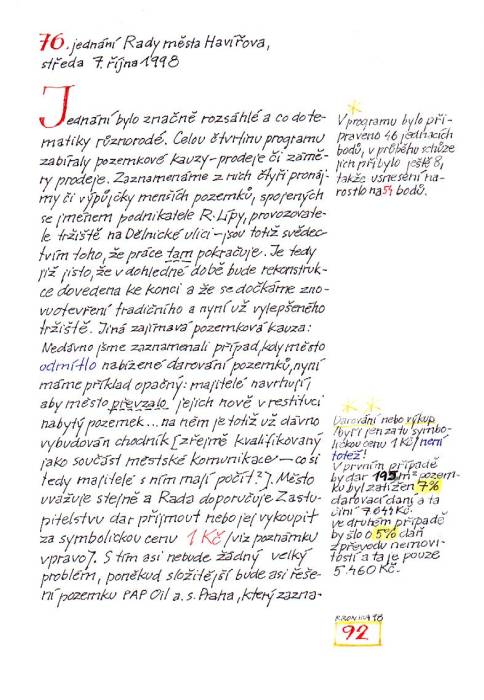 76. jednání Rady města Havířova,
středa 7. října 1998
Jednání bylo značně rozsáhlé a co do te-
matiky různorodé. Celou čtvrtinu programu
zabíraly pozemkové kauzy - prodeje či zámě-
ry prodeje. Zaznamenáme z nich čtyři pronáj-
my či výpůjčky menších pozemků, spojených
se jménem podnikatele R. Lípy, provozovate-
le tržiště na Dělnické ulici - jsou totiž svědec-
tvím toho, že práce tam pokračuje. Je tedy
již jisto, že v dohledné době bude rekonstruk-
ce dovedena ke konci a že se dočkáme zno-
vuotevření tradičního a nyní už vylepšeného
tržiště. Jiná zajímavá pozemková kauza:
Nedávno jsme zaznamenali případ, kdy město
odmítlo nabízené darování pozemků, nyní
máme příklad opačný: majitelé navrhují,
aby město převzalo jejich nově v restituci
nabytý pozemek... na něm je totiž už dávno
vybudován chodník [zřejmě kvalifikovaný
jako součást městské komunikace - co si
tedy majitelé s ním mají počít?]. Město
uvažuje stejně a Rada doporučuje Zastu-
pitelstvu dar přijmout nebo jej vykoupit
za symbolickou cenu 1 Kč /viz poznámku
vpravo/. S tím asi nebude žádný velký
problém, poněkud složitější bude asi řeše-
ní pozemku PAP Oil a.s. Praha, který zazna-
V programu bylo při-
praveno 46 jednacích
bodů, v průběhu schůze
jich přibylo ještě 8,
takže usnesení na-
rostlo na 54 bodů.
Darování nebo výkup
/byť i jen za tu symbo-
lickou cenu 1 Kč/ není
totéž!
V prvním případě
by dar 195 m² pozem-
ku byl zatížen 7%
darovací daní a ta
činí 7.644 Kč.
ve druhém případě
by šlo o 5% daň
z převodu nemovi-
tostí a ta je pouze
5.460 Kč.
KRONIKA 98
92